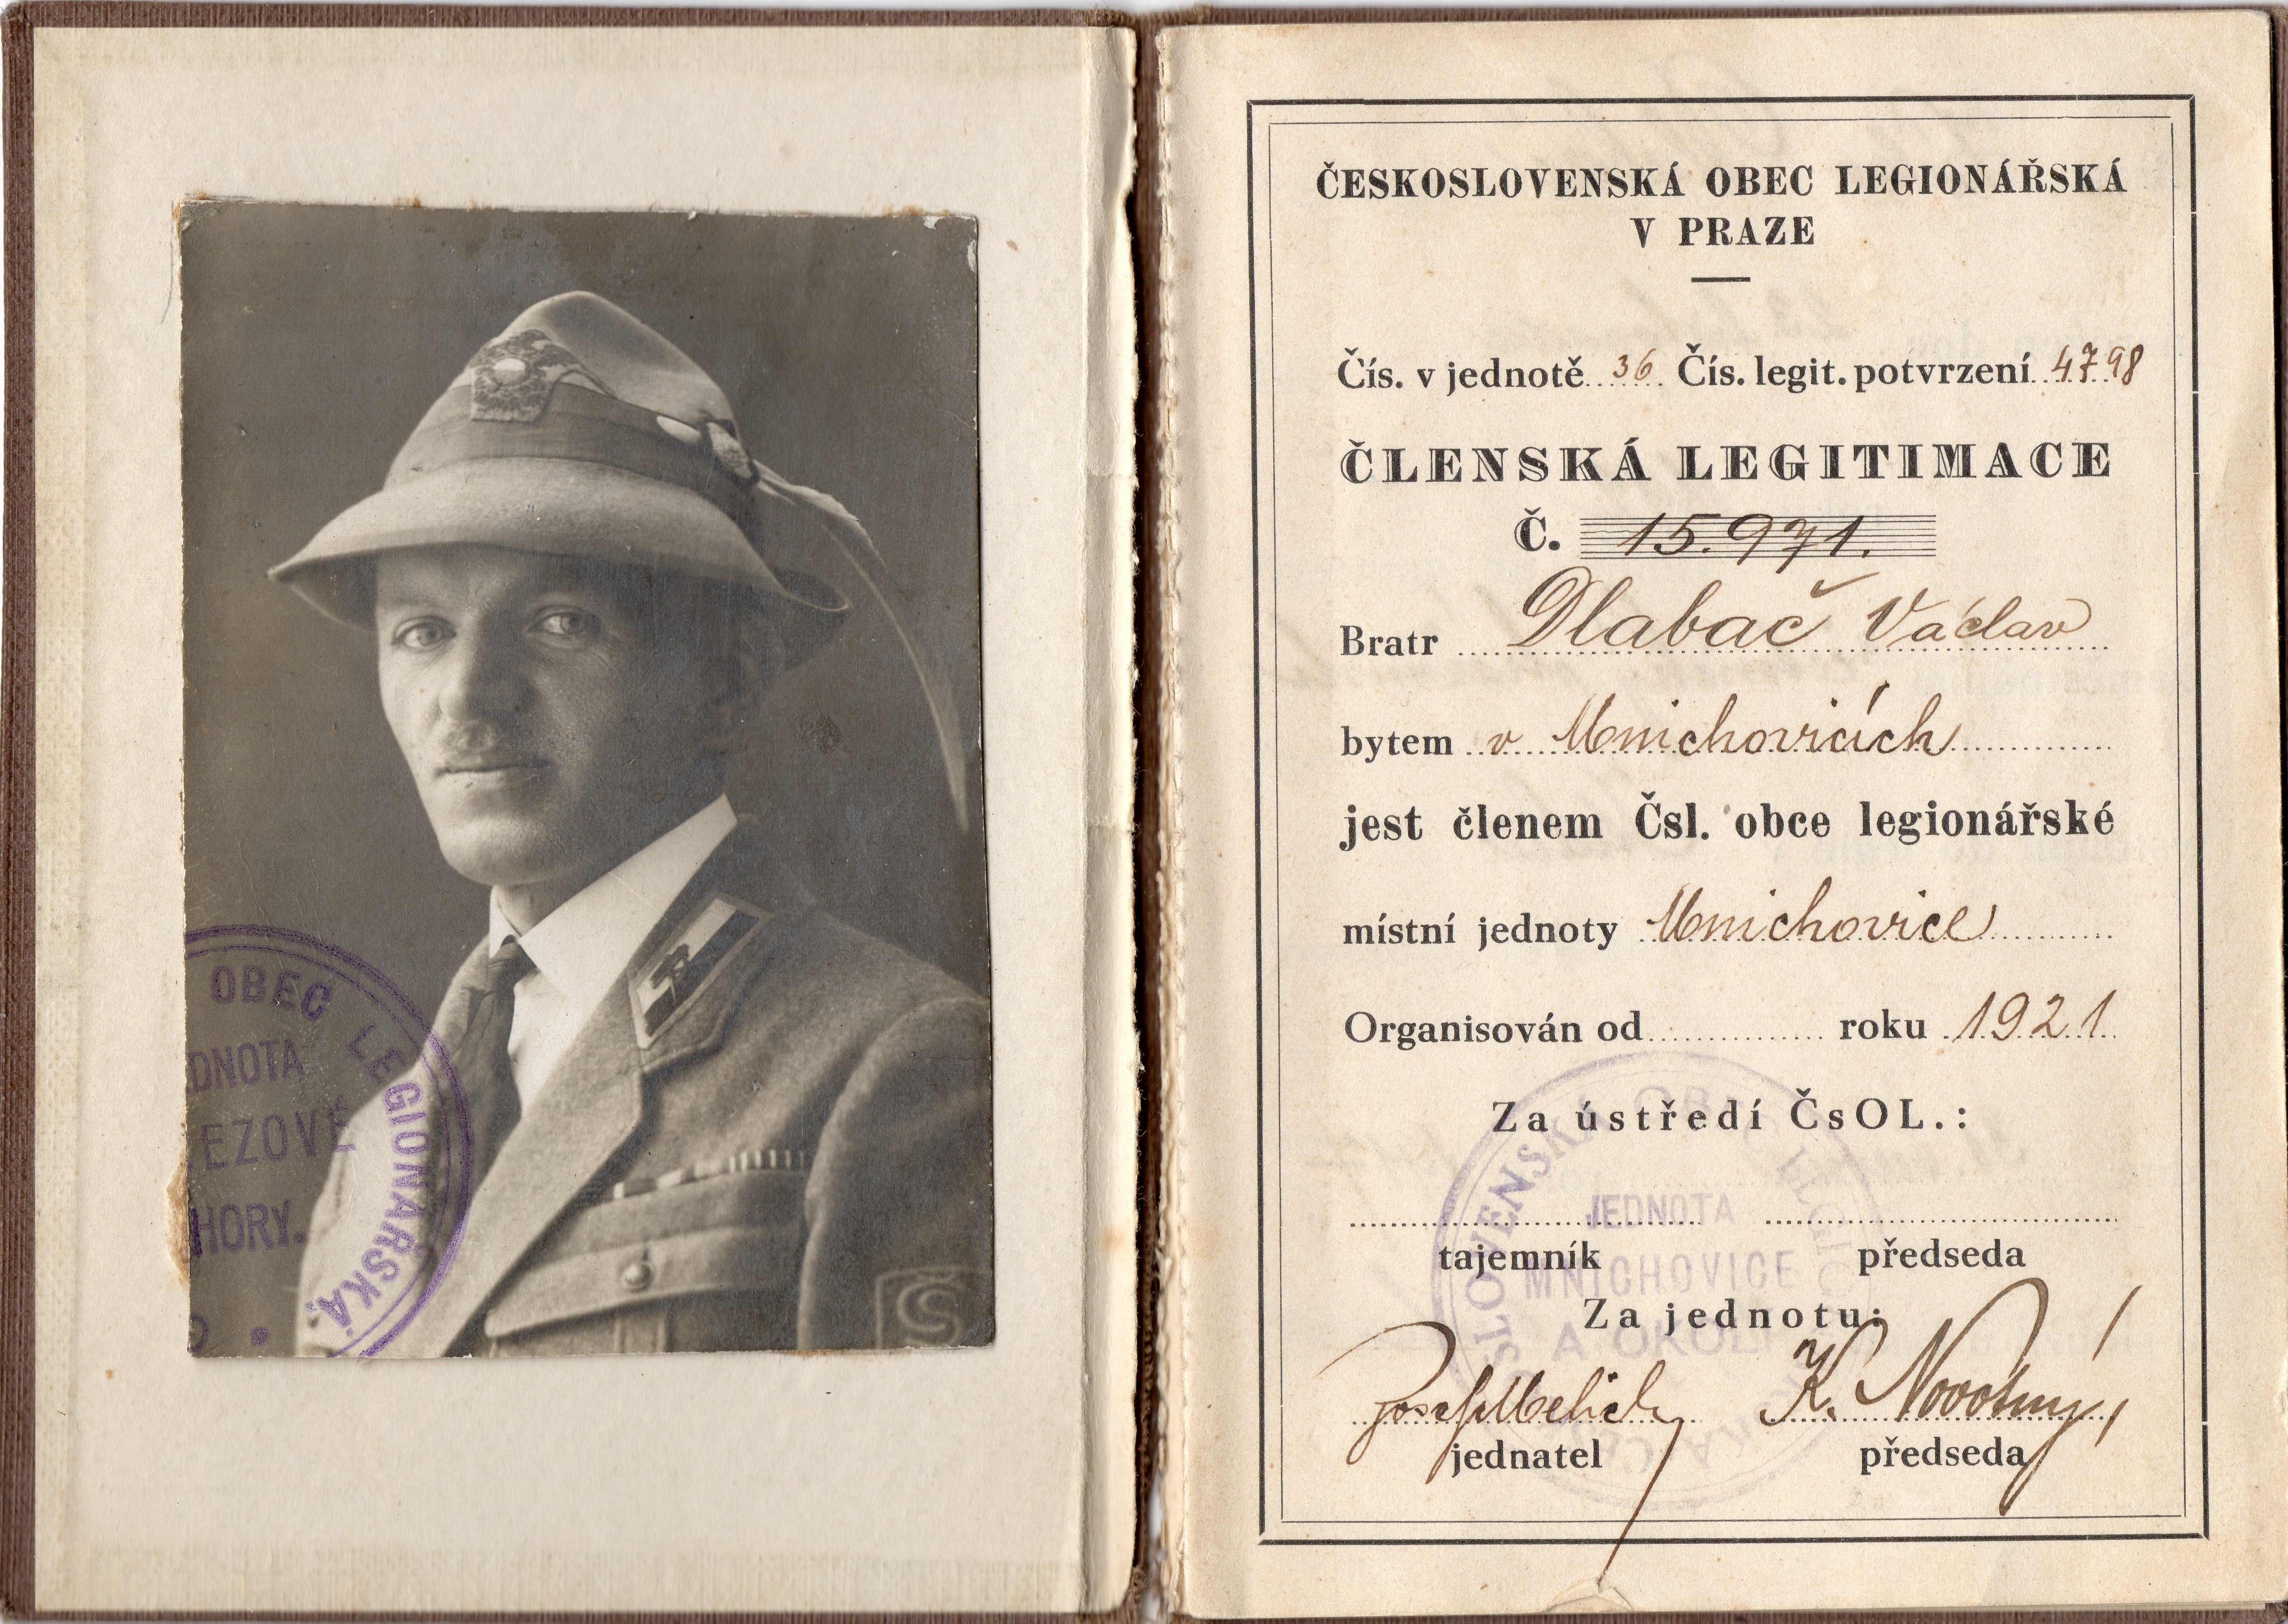 OBEC LEGIONÁŘSKÁ
HORY.
Š
ČESKOSLOVENSKÁ OBEC LEGIONÁŘSKÁ
V PRAZE
Čís. v jednotě 36 Čís. legit. potvrzení 4798
ČLENSKÁ LEGITIMACE
Č. 15.971.
Bratr Dlabač Václav
bytem v Mnichovicích
jest členem Čsl. obce legionářské
místní jednoty Mnichovice
Organisován od roku 1921
Za ústředí ČsOL.:
JEDNOTA
tajemník předseda
MNICHOVICE
Za jednotu:
A OKOLÍ
Josef K. Novotný
jednatel předseda